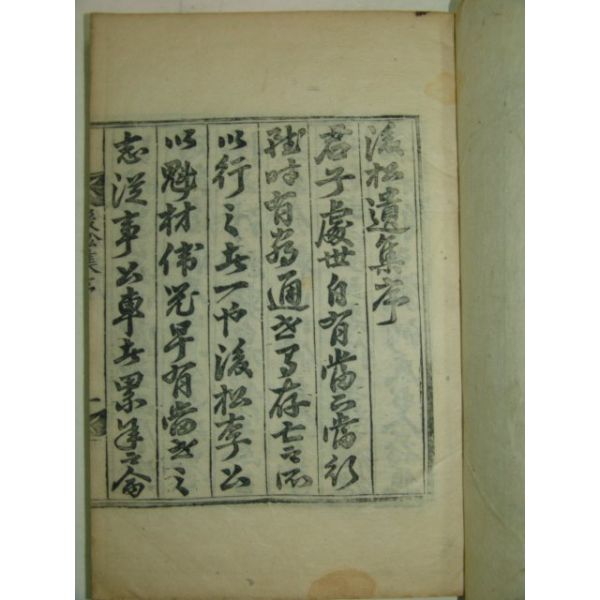 後松遺集序
君子處世自有當不當
時有窮通存亡之
以行之者一也後松李公
以魁材偉器早有當世之
志從事公車者累
後松集序